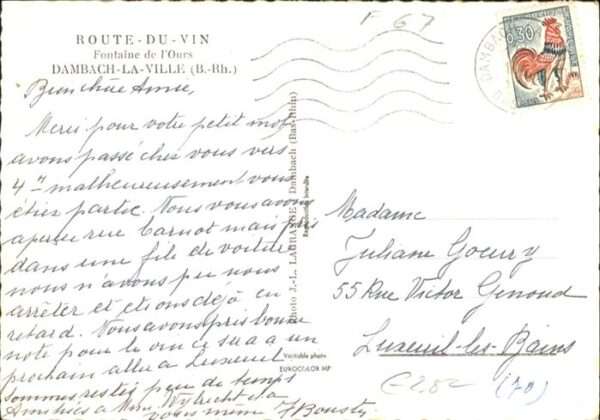 F 67
ROUTE-DU-VIN
Fontaine de l'Ours
DAMBACH-LA-VILLE (B.-Rh.)
0,30
DAMBACH
Bien chère Anne,
Merci pour votre petit mot
avons passé chez vous vers
4 H malheureusement vous
étiez partie. Nous vous avons
aperçu rue Carnot mais pris
dans une file de voiture
nous n'avons pu nous
arrêter et étions déjà en
retard. Nous avons pris bonne
note pour le vin ce sera a un
prochain aller a Luxeuil
sommes resté peu de temps
Amitiés a
vous même
Photo J.-L. Dambach (Bas-Rhin)
Reproduction interdite
Véritable photo
EUROCOLOR MP
Madame
Juliane Goeury
55 Rue Victor Genoud
Luxeuil-les-Bains
(70)